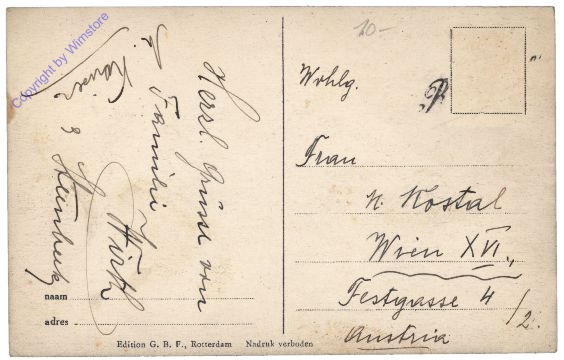 Copyright by Wimstore
Herzl. Grüsse von
Familie Hirth
naam
adres
Edition G. B. F., Rotterdam Nadruk verboden
10-
Wohlg.
Frau
N. Kostal
Wien XVI.,
Festgasse 4/2.
Austria